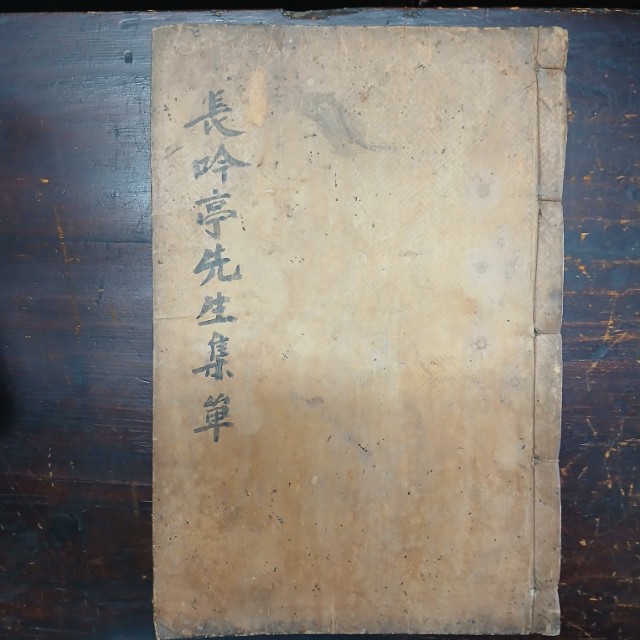 長吟亭先生集單